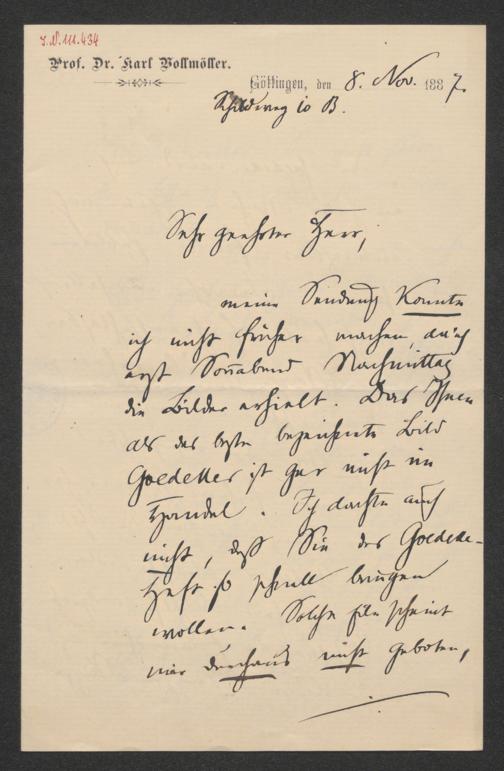 I.N. 111.434
Prof. Dr. Karl Vollmöller.
Göttingen, den 8. Nov. 1887.
Schildweg 10 B.
Sehr geehrter Herr,
meine Sendung konnte
ich nicht früher machen, da ich
erst Sonnabend Nachmittag
die Bilder erhielt. Das Ihnen
als das beste bezeichnete Bild
Goedekes ist gar nicht im
Handel. Ich dachte auch
nicht, daß Sie das Goedeke-
Heft so schnell bringen
wollen. Solche Eile scheint
mir durchaus nicht geboten,